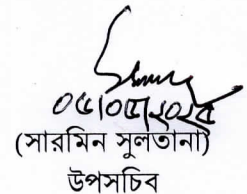 ০৫/০৫/২০২৫
(সারমিন সুলতানা)
উপসচিব